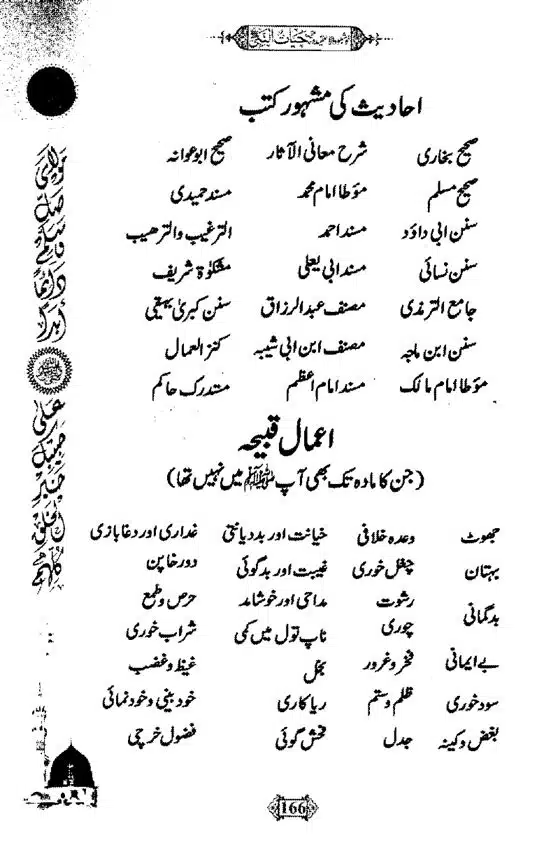 احادیث کی مشہور کتب
صحیح بخاری شرح معانی الآثار صحیح ابوعوانہ
صحیح مسلم مؤطا امام محمد مسند حمیدی
سنن ابی داؤد مسند احمد الترغیب والترھیب
سنن نسائی مسند ابی یعلی مشکوٰۃ شریف
جامع الترمذی مصنف عبدالرزاق سنن کبریٰ بیہقی
سنن ابن ماجہ مصنف ابن ابی شیبہ کنز العمال
مؤطا امام مالک مسند امام اعظم مستدرک حاکم
اعمال قبیحہ
(جن کا مادہ تک بھی آپ ﷺ میں نہیں تھا)
جھوٹ وعدہ خلافی خیانت اور بددیانتی غداری اور دغابازی
بہتان چغل خوری غیبت اور بدگوئی دورخاپن
بدگمانی رشوت مداحی اور خوشامد حرص و طمع
چوری ناپ تول میں کمی شراب خوری
بے ایمانی فخر و غرور بخل غیظ و غضب
سود خوری ظلم و ستم ریاکاری خود بینی و خود نمائی
بغض و کینہ جدل فحش گوئی فضول خرچی
مولای صل وسلم دائما ابدا
علی حبیبک خیر الخلق کلھم
166